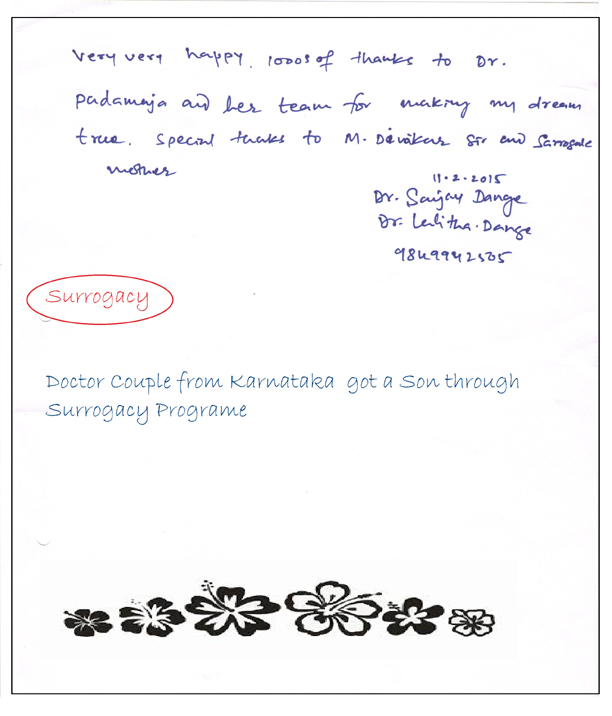 very very happy. 1000s of thanks to Dr.
Padamaja and her team for making my dream
true. Special thaks to M. Divakar Sir and Sarrogate
mother
11.2.2015
Dr. Sanjay Dange
Dr. Lalitha. Dange
9849942505
Surrogacy
Doctor Couple from Karnataka got a Son through
Surrogacy Programe